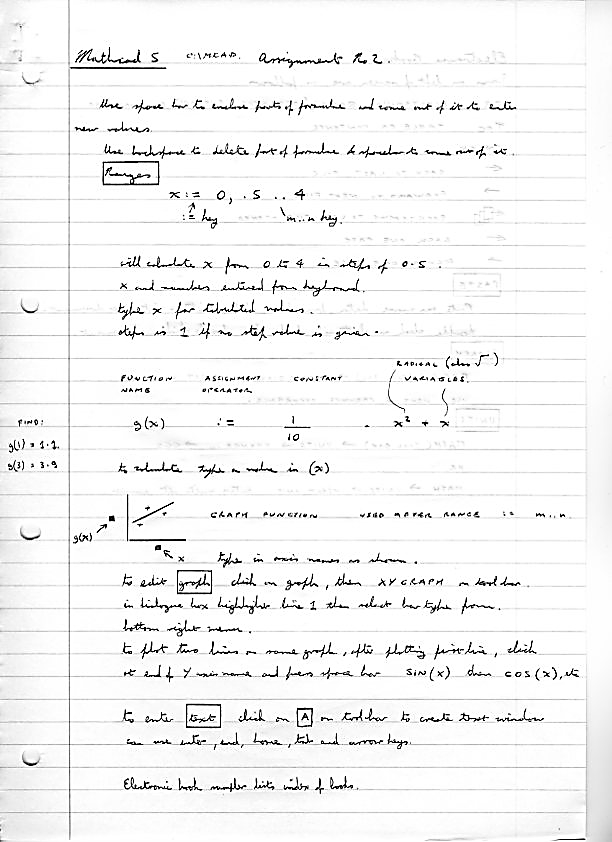 Mathcad 5 C:\MCAD. Assignment No 2.
Use space bar to enclose parts of formulae and come out of it to enter
new values.
Use backspace to delete part of formulae & spacebar to come out of it.
Ranges
x := 0, .5 .. 4
:= key m..n key.
will calculate x from 0 to 4 in steps of 0.5.
x and numbers entered from keyboard.
type x for tabulated values.
steps is 1 if no step value is given.
RADICAL (also √)
FUNCTION ASSIGNMENT CONSTANT VARIABLES.
NAME OPERATOR
FIND:
g(x) := 1/10 . x² + x
g(1) = 1.1
g(3) = 3.9
to calculate type a value in (x)
GRAPH FUNCTION USED AFTER RANGE := m..n
g(x)
x type in axis names as shown.
to edit graph click on graph, then XY GRAPH on tool bar.
in dialogue box highlight line 1 then select bar type from
bottom right menu.
to plot two lines on same graph, after plotting first line, click
at end of Y axis name and press space bar SIN(x) then COS(x), etc
to enter text click on A on toolbar to create text window
can use enter, end, home, tab and arrow keys.
Electronic book sampler lists index of books.